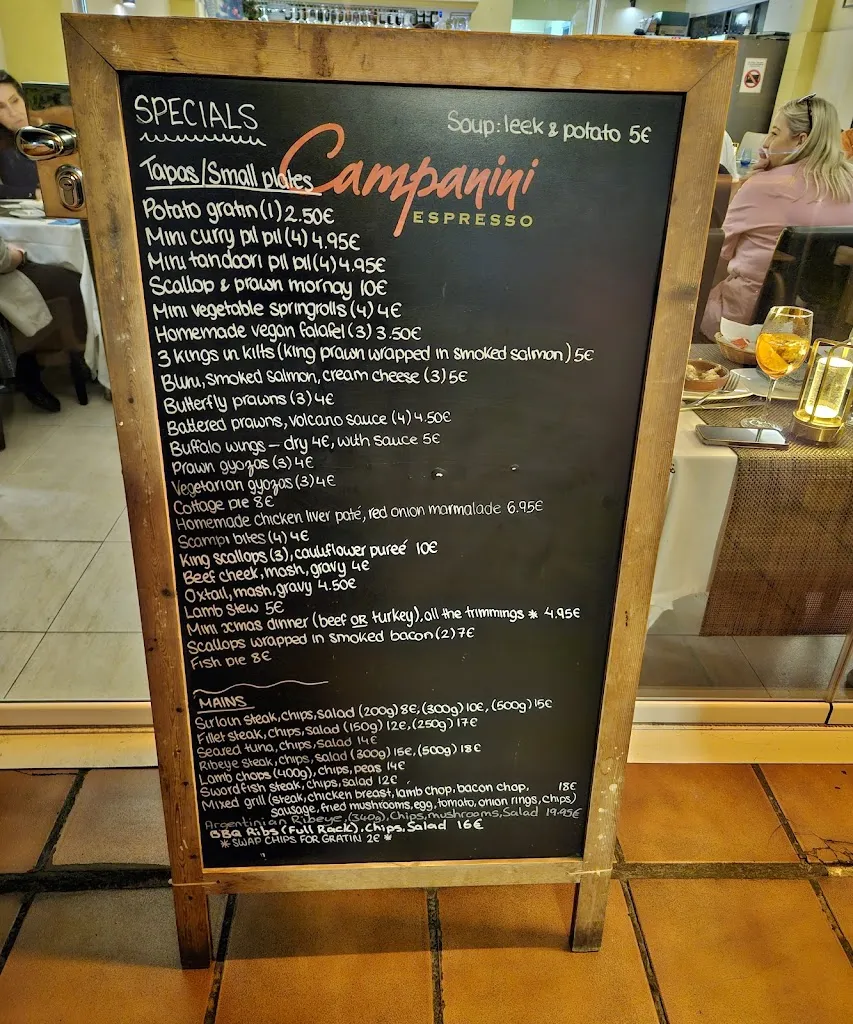 SPECIALS
Soup: leek & potato 5€
Campanini
ESPRESSO
Tapas/Small plates
Potato gratin (1) 2.50€
Mini curry pil pil (4) 4.95€
Mini tandoori pil pil (4) 4.95€
Scallop & prawn mornay 10€
Mini vegetable springrolls (4) 4€
Homemade vegan falafel (3) 3.50€
3 kings in kilts (king prawn wrapped in smoked salmon) 5€
Blini, smoked salmon, cream cheese (3) 5€
Butterfly prawns (3) 4€
Battered prawns, volcano sauce (4) 4.50€
Buffalo wings - dry 4€, with sauce 5€
Prawn gyozas (3) 4€
Vegetarian gyozas (3) 4€
Cottage pie 8€
Homemade chicken liver paté, red onion marmalade 6.95€
Scampi bites (4) 4€
King scallops (3), cauliflower pureé 10€
Beef cheek, mash, gravy 4€
Oxtail, mash, gravy 4.50€
Lamb stew 5€
Mini xmas dinner (beef OR turkey), all the trimmings * 4.95€
Scallops wrapped in smoked bacon (2) 7€
Fish pie 8€
MAINS
Sirloin steak, chips, salad (200g) 8€, (300g) 10€, (500g) 15€
Fillet steak, chips, salad (150g) 12€, (250g) 17€
Seared tuna, chips, salad 14€
Ribeye steak, chips, salad (300g) 15€, (500g) 18€
Lamb chops (400g), chips, peas 14€
Swordfish steak, chips, salad 12€
Mixed grill (steak, chicken breast, lamb chop, bacon chop, 18€
sausage, fried mushrooms, egg, tomato, onion rings, chips)
Argentinian Ribeye, (340g), Chips, mushrooms, Salad 19.95€
BBQ Ribs (Full Rack), Chips, Salad 16€
* SWAP CHIPS FOR GRATIN 2€ *